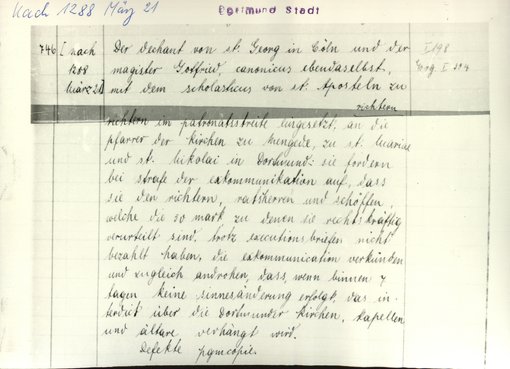 Nach 1288 März 21
Dortmund Stadt
746 [nach 1288 März 21]
Der Dechant von st. Georg in Cöln und der
magister Gotfried, canonicus ebendaselbst,
mit dem scholasticus von st. Aposteln zu
richtern
richtern im patronatsstreite eingesetzt, an die
pfarrer der kirchen zu Mengede, zu st. Marien
und st. Nikolai in Dortmund: sie fordern
bei strafe der exkommunikation auf, dass
sie den richtern, ratsherren und schöffen,
welche die 50 mark zu denen sie rechtskräftig
verurteilt sind trotz executionsbriefen nicht
bezahlt haben, die exkommunication verkünden
und zugleich androhen, dass, wenn binnen 7
tagen keine sinnesänderung erfolgt, das in-
terdict über die Dortmunder kirchen, kapellen
und altäre verhängt wird.
Defekte pgmcopie.